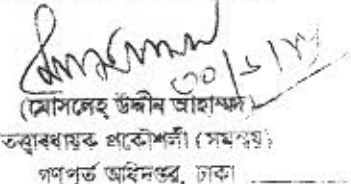 ৩০/১/১৭
(মোসলেহ্ উদ্দীন আহাম্মদ)
তত্ত্বাবধায়ক প্রকৌশলী (সমন্বয়)
গণপূর্ত অধিদপ্তর, ঢাকা